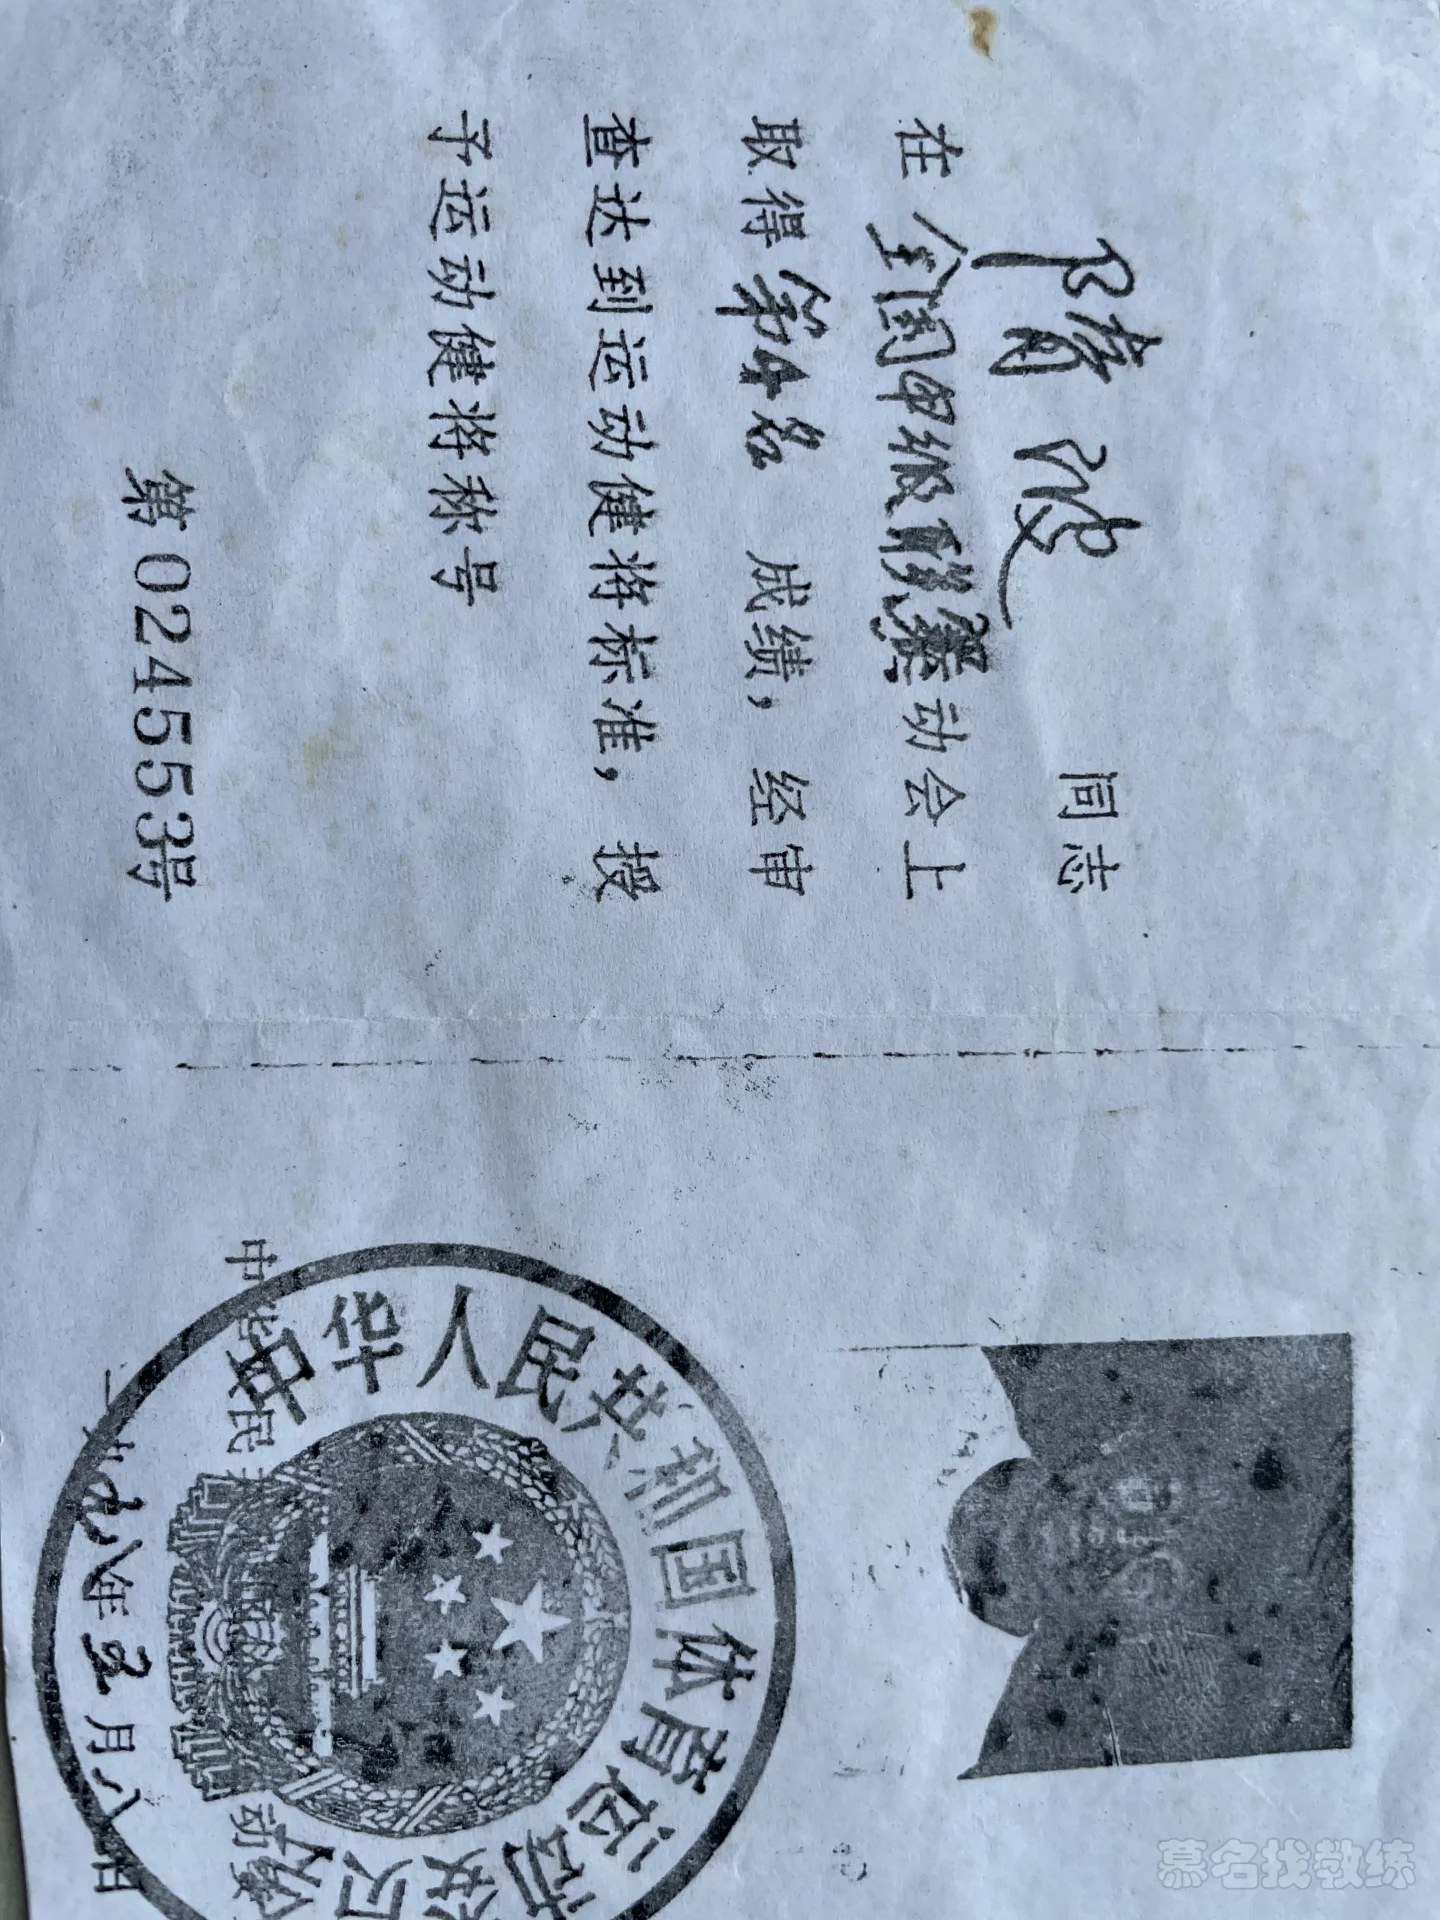 隋波 同志
在全国甲级联赛动会上
取得第 名 成绩，经审
查达到运动健将标准，授
予运动健将称号
第024553号
中华人民共和国体育运动委员会
一九八年五月八日
慕名找教练